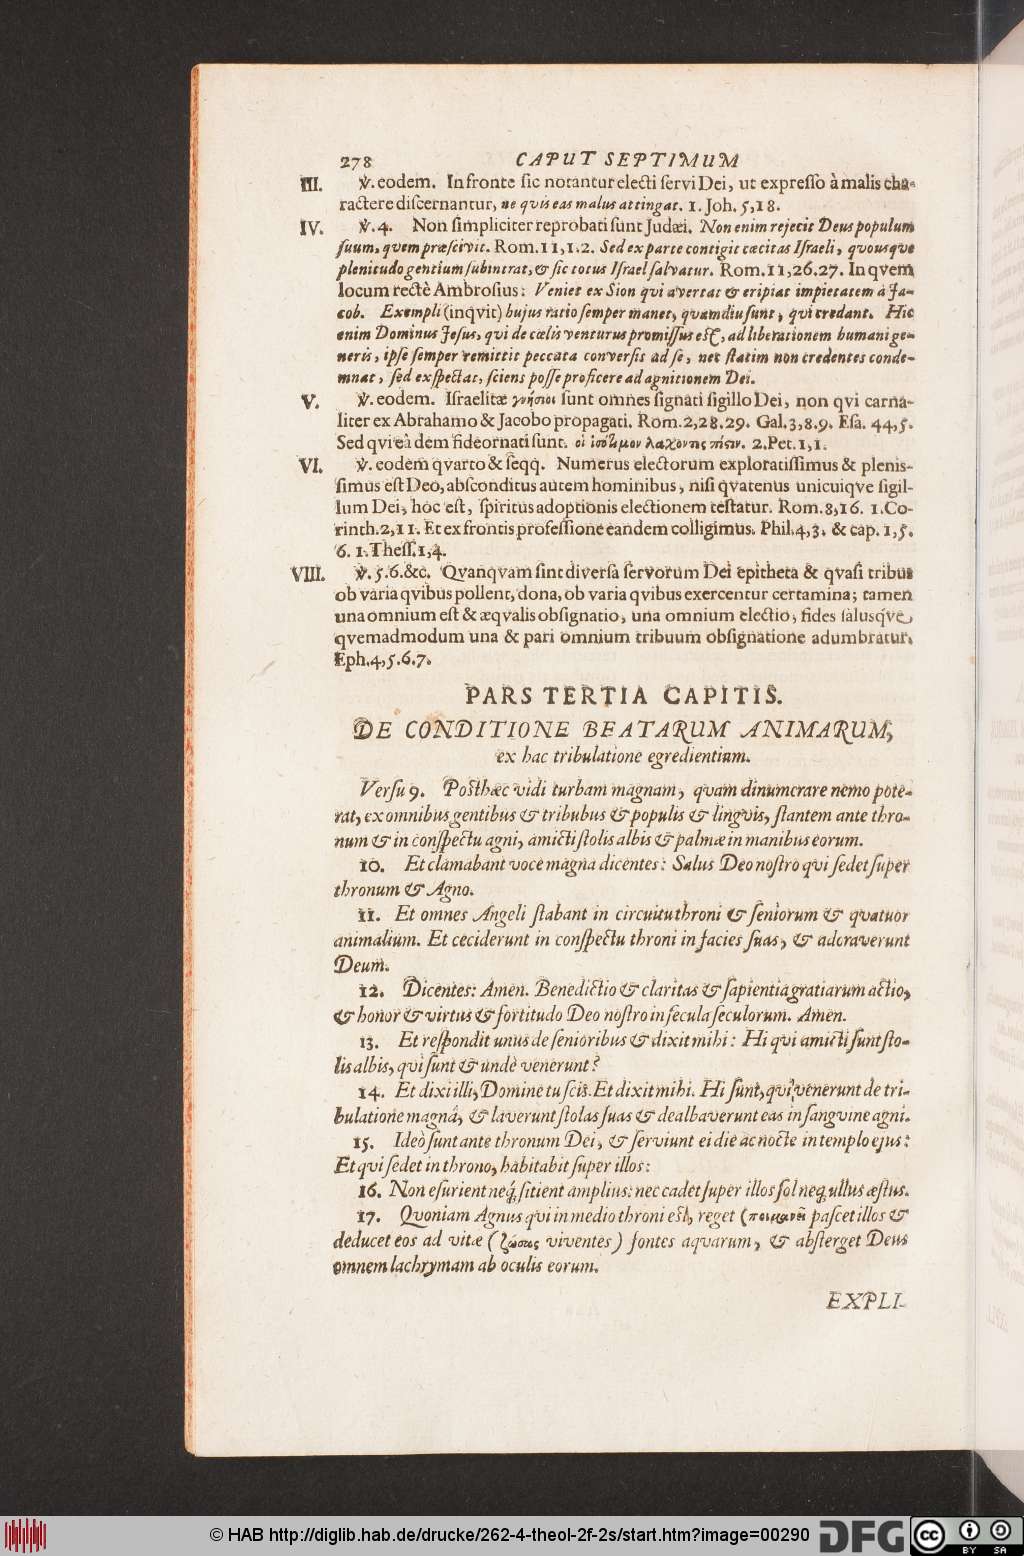 278 CAPUT SEPTIMUM
III. ℣. eodem. In fronte sic notantur electi servi Dei, ut expresso à malis cha-
ractere discernantur, ne qvis eas malus attingat. 1. Joh. 5,18.
IV. ℣. 4. Non simpliciter reprobati sunt Judæi. Non enim rejecit Deus populum
suum, qvem præscivit. Rom. 11,1.2. Sed ex parte contigit cæcitas Israeli, qvousqve
plenitudo gentium subintrat, & sic totus Israel salvatur. Rom. 11,26.27. In qvem
locum rectè Ambrosius: Veniet ex Sion qui avertat & eripiat impietatem à Ja-
cob. Exempli (inqvit) hujus ratio semper manet, qvamdiu sunt, qvi credant. Hic
enim Dominus Jesus, qui de cælis venturus promissus est, ad liberationem humani ge-
neris, ipse semper remittit peccata conversis ad se, nec statim non credentes conde-
mnat, sed exspectat, sciens posse proficere ad agnitionem Dei.
V. ℣. eodem. Israelitæ γνήσιοι sunt omnes signati sigillo Dei, non qvi carna-
liter ex Abrahamo & Jacobo propagati. Rom. 2,28.29. Gal. 3,8.9. Esa. 44,5.
Sed qvi eâdem fide ornati sunt. οἱ ἰσότιμον λαχοντες πίστιν. 2. Pet. 1,1.
VI. ℣. eodem qvarto & seqq. Numerus electorum exploratissimus & plenis-
simus est Deo, absconditus autem hominibus, nisi qvatenus unicuiqve sigil-
lum Dei, hoc est, spiritus adoptionis electionem testatur. Rom. 8,16. 1. Co-
rinth. 2,11. Et ex frontis professione eandem colligimus. Phil. 4,3. & cap. 1,5.
6. 1. Thess. 1,4.
VIII. ℣. 5. 6. &c. Qvanqvam sint diversa servorum Dei epitheta & qvasi tribus
ob varia qvibus pollent, dona, ob varia qvibus exercentur certamina; tamen
una omnium est & æqvalis obsignatio, una omnium electio, fides salusq́ve,
qvemadmodum una & pari omnium tribuum obsignatione adumbratur.
Eph. 4,5.6.7.
PARS TERTIA CAPITIS.
DE CONDITIONE BEATARUM ANIMARUM,
ex hac tribulatione egredientium.
Versu 9. Posthæc vidi turbam magnam, quam dinumerare nemo pote-
rat, ex omnibus gentibus & tribubus & populis & lingvis, stantem ante thro-
num & in conspectu agni, amicti stolis albis & palmæ in manibus eorum.
10. Et clamabant voce magna dicentes: Salus Deo nostro qui sedet super
thronum & Agno.
11. Et omnes Angeli stabant in circuitu throni & seniorum & quatuor
animalium. Et ceciderunt in conspectu throni in facies suas, & adoraverunt
Deum.
12. Dicentes: Amen. Benedictio & claritas & sapientia gratiarum actio,
& honor & virtus & fortitudo Deo nostro in secula seculorum. Amen.
13. Et respondit unus de senioribus & dixit mihi: Hi qui amicti sunt sto-
lis albis, qui sunt & undè venerunt?
14. Et dixi illi, Domine tu scis. Et dixit mihi. Hi sunt, qui venerunt de tri-
bulatione magnâ, & laverunt stolas suas & dealbaverunt eas in sangvine agni.
15. Ideò sunt ante thronum Dei, & serviunt ei die ac nocte in templo ejus:
Et qui sedet in throno, habitabit super illos:
16. Non esurient neq́, sitient amplius: nec cadet super illos sol neq, ullus æstus.
17. Quoniam Agnus qui in medio throni est, reget (ποιμανεῖ pascet illos &
deducet eos ad vitæ (ζώσας viventes) fontes aquarum, & absterget Deus
omnem lachrymam ab oculis eorum.
EXPLI-
© HAB http://diglib.hab.de/drucke/262-4-theol-2f-2s/start.htm?image=00290
DFG
cc BY SA